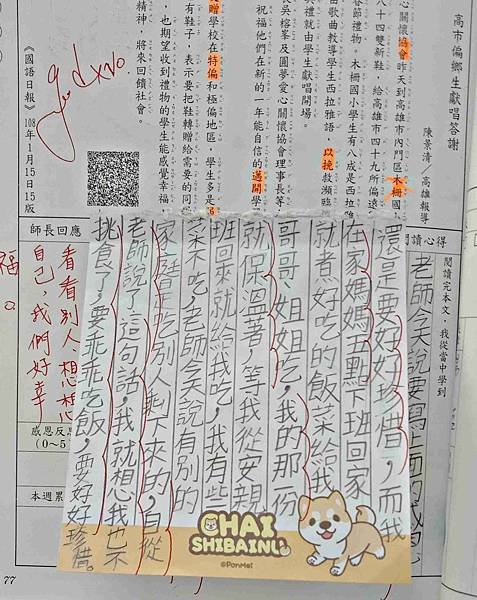 高市偏鄉生獻唱答謝
陳景清／高雄報導
心關懷協會昨天到高雄市內門區木柵國
八十四雙新鞋，給高雄市四十九所偏遠
春節禮物。木柵國小學生有八成是西拉雅
由歌曲教導學生西拉雅語，以挽救瀕臨
典禮就由學生獻唱開場。
長吳榕峯及圓夢愛心關懷協會理事長等
祝福他們在新的一年能自信的邁開學
贈學校在特偏和極偏地區，學生多是
有鞋子，表示要把鞋轉贈給需要的同
，也期望收到禮物的學生能感覺幸福，
精神，將來回饋社會。
《國語日報》108年1月15日15版
讀心得
閱讀完本文，我從當中學到
老師今天說要寫上面的感
還是要好好珍惜，而我
在家媽媽五點下班回家
就煮好吃的飯菜給我
哥哥、姐姐吃，我的那份
就保溫著，等我從安親
班回來就給我吃，我有些
菜不吃，老師今天說有別的
家庭是吃別人剩下來的，自從
老師說了這句話，我就想心我也不
挑食了，要乖乖吃飯，要好好珍惜。
HAI
SHIBAINU
©PonMei
師長回應
看看別人、想想
自己、我們好幸
福。
感恩反
(0～5
本週累
77